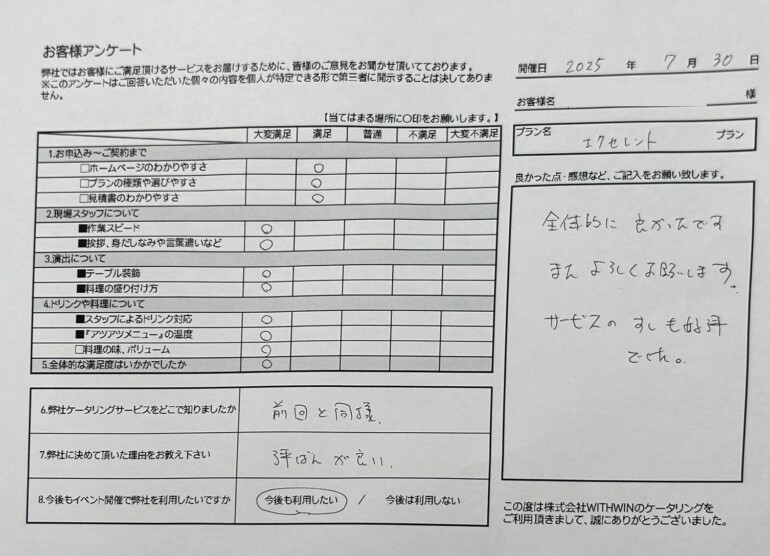 お客様アンケート
弊社ではお客様にご満足頂けるサービスをお届けするために、皆様のご意見をお聞かせ頂いております。
※このアンケートはご回答いただいた個々の内容を個人が特定できる形で第三者に開示することは決してありません。
開催日 2025 年 7 月 30 日
お客様名 様
プラン名 エクセレント プラン
【当てはまる場所に〇印をお願いします。】
大変満足 満足 普通 不満足 大変不満足
1.お申込み～ご契約まで
□ホームページのわかりやすさ ○
□プランの種類や選びやすさ ○
□見積書のわかりやすさ ○
2.現場スタッフについて
■作業スピード ○
■挨拶、身だしなみや言葉遣いなど ○
3.演出について
■テーブル装飾 ○
■料理の盛り付け方 ○
4.ドリンクや料理について
■スタッフによるドリンク対応 ○
■『アツアツメニュー』の温度 ○
□料理の味、ボリューム ○
5.全体的な満足度はいかかでしたか ○
6.弊社ケータリングサービスをどこで知りましたか 前回と同様.
7.弊社に決めて頂いた理由をお教え下さい 評ばんが良い.
8.今後もイベント開催で弊社を利用したいですか 今後も利用したい / 今後は利用しない
良かった点・感想など、ご記入をお願い致します。
全体的に良かったです
またよろしくお願いします。
サービスのすしも好評
でした。
この度は株式会社WITHWINのケータリングを
ご利用頂きまして、誠にありがとうございました。